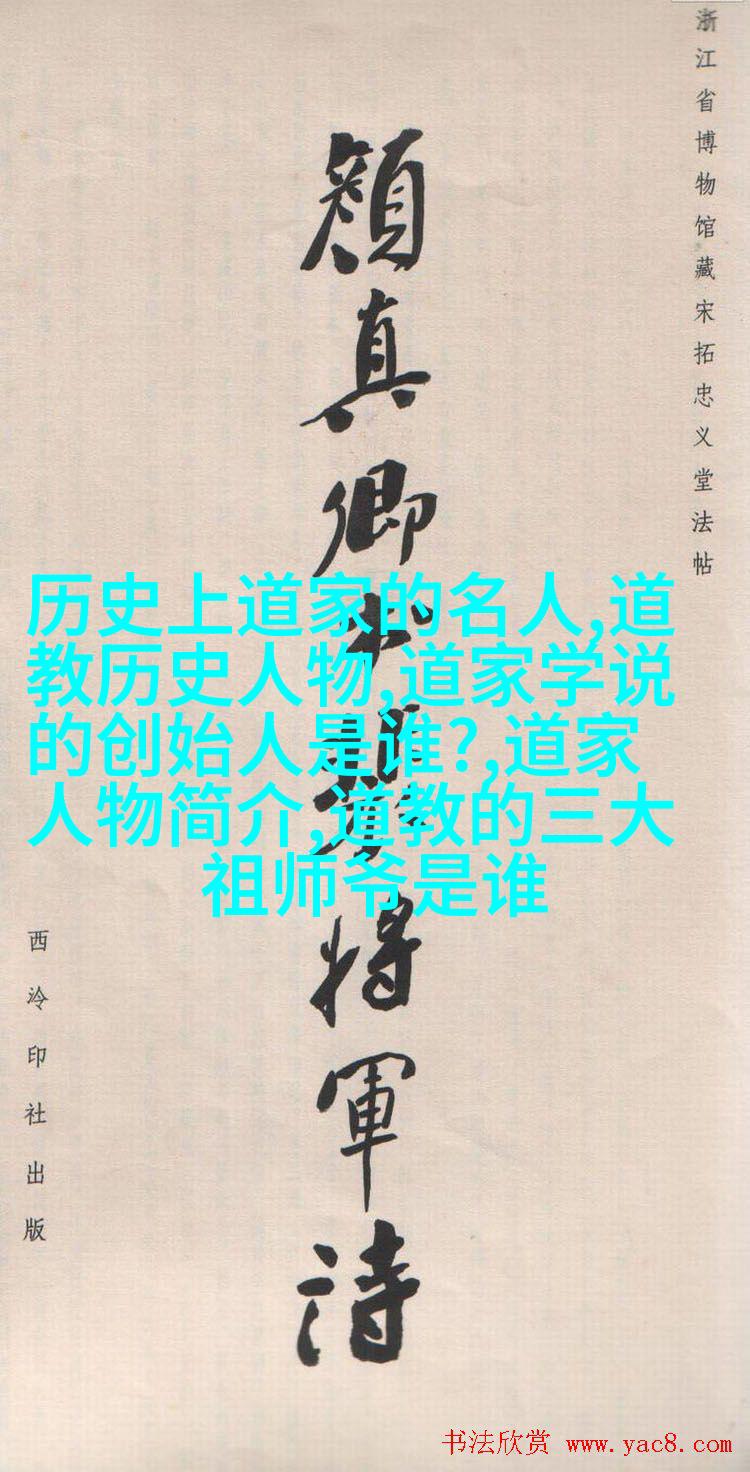 浙江省博物馆藏宋拓忠义堂法帖
顏真卿书將軍诗
西泠印社出版
历史上道家的名人,道
教历史人物,道家学说
的创始人是谁?,道家
人物简介,道教的三大
祖师爷是谁
书法欣赏 www.yac8.com